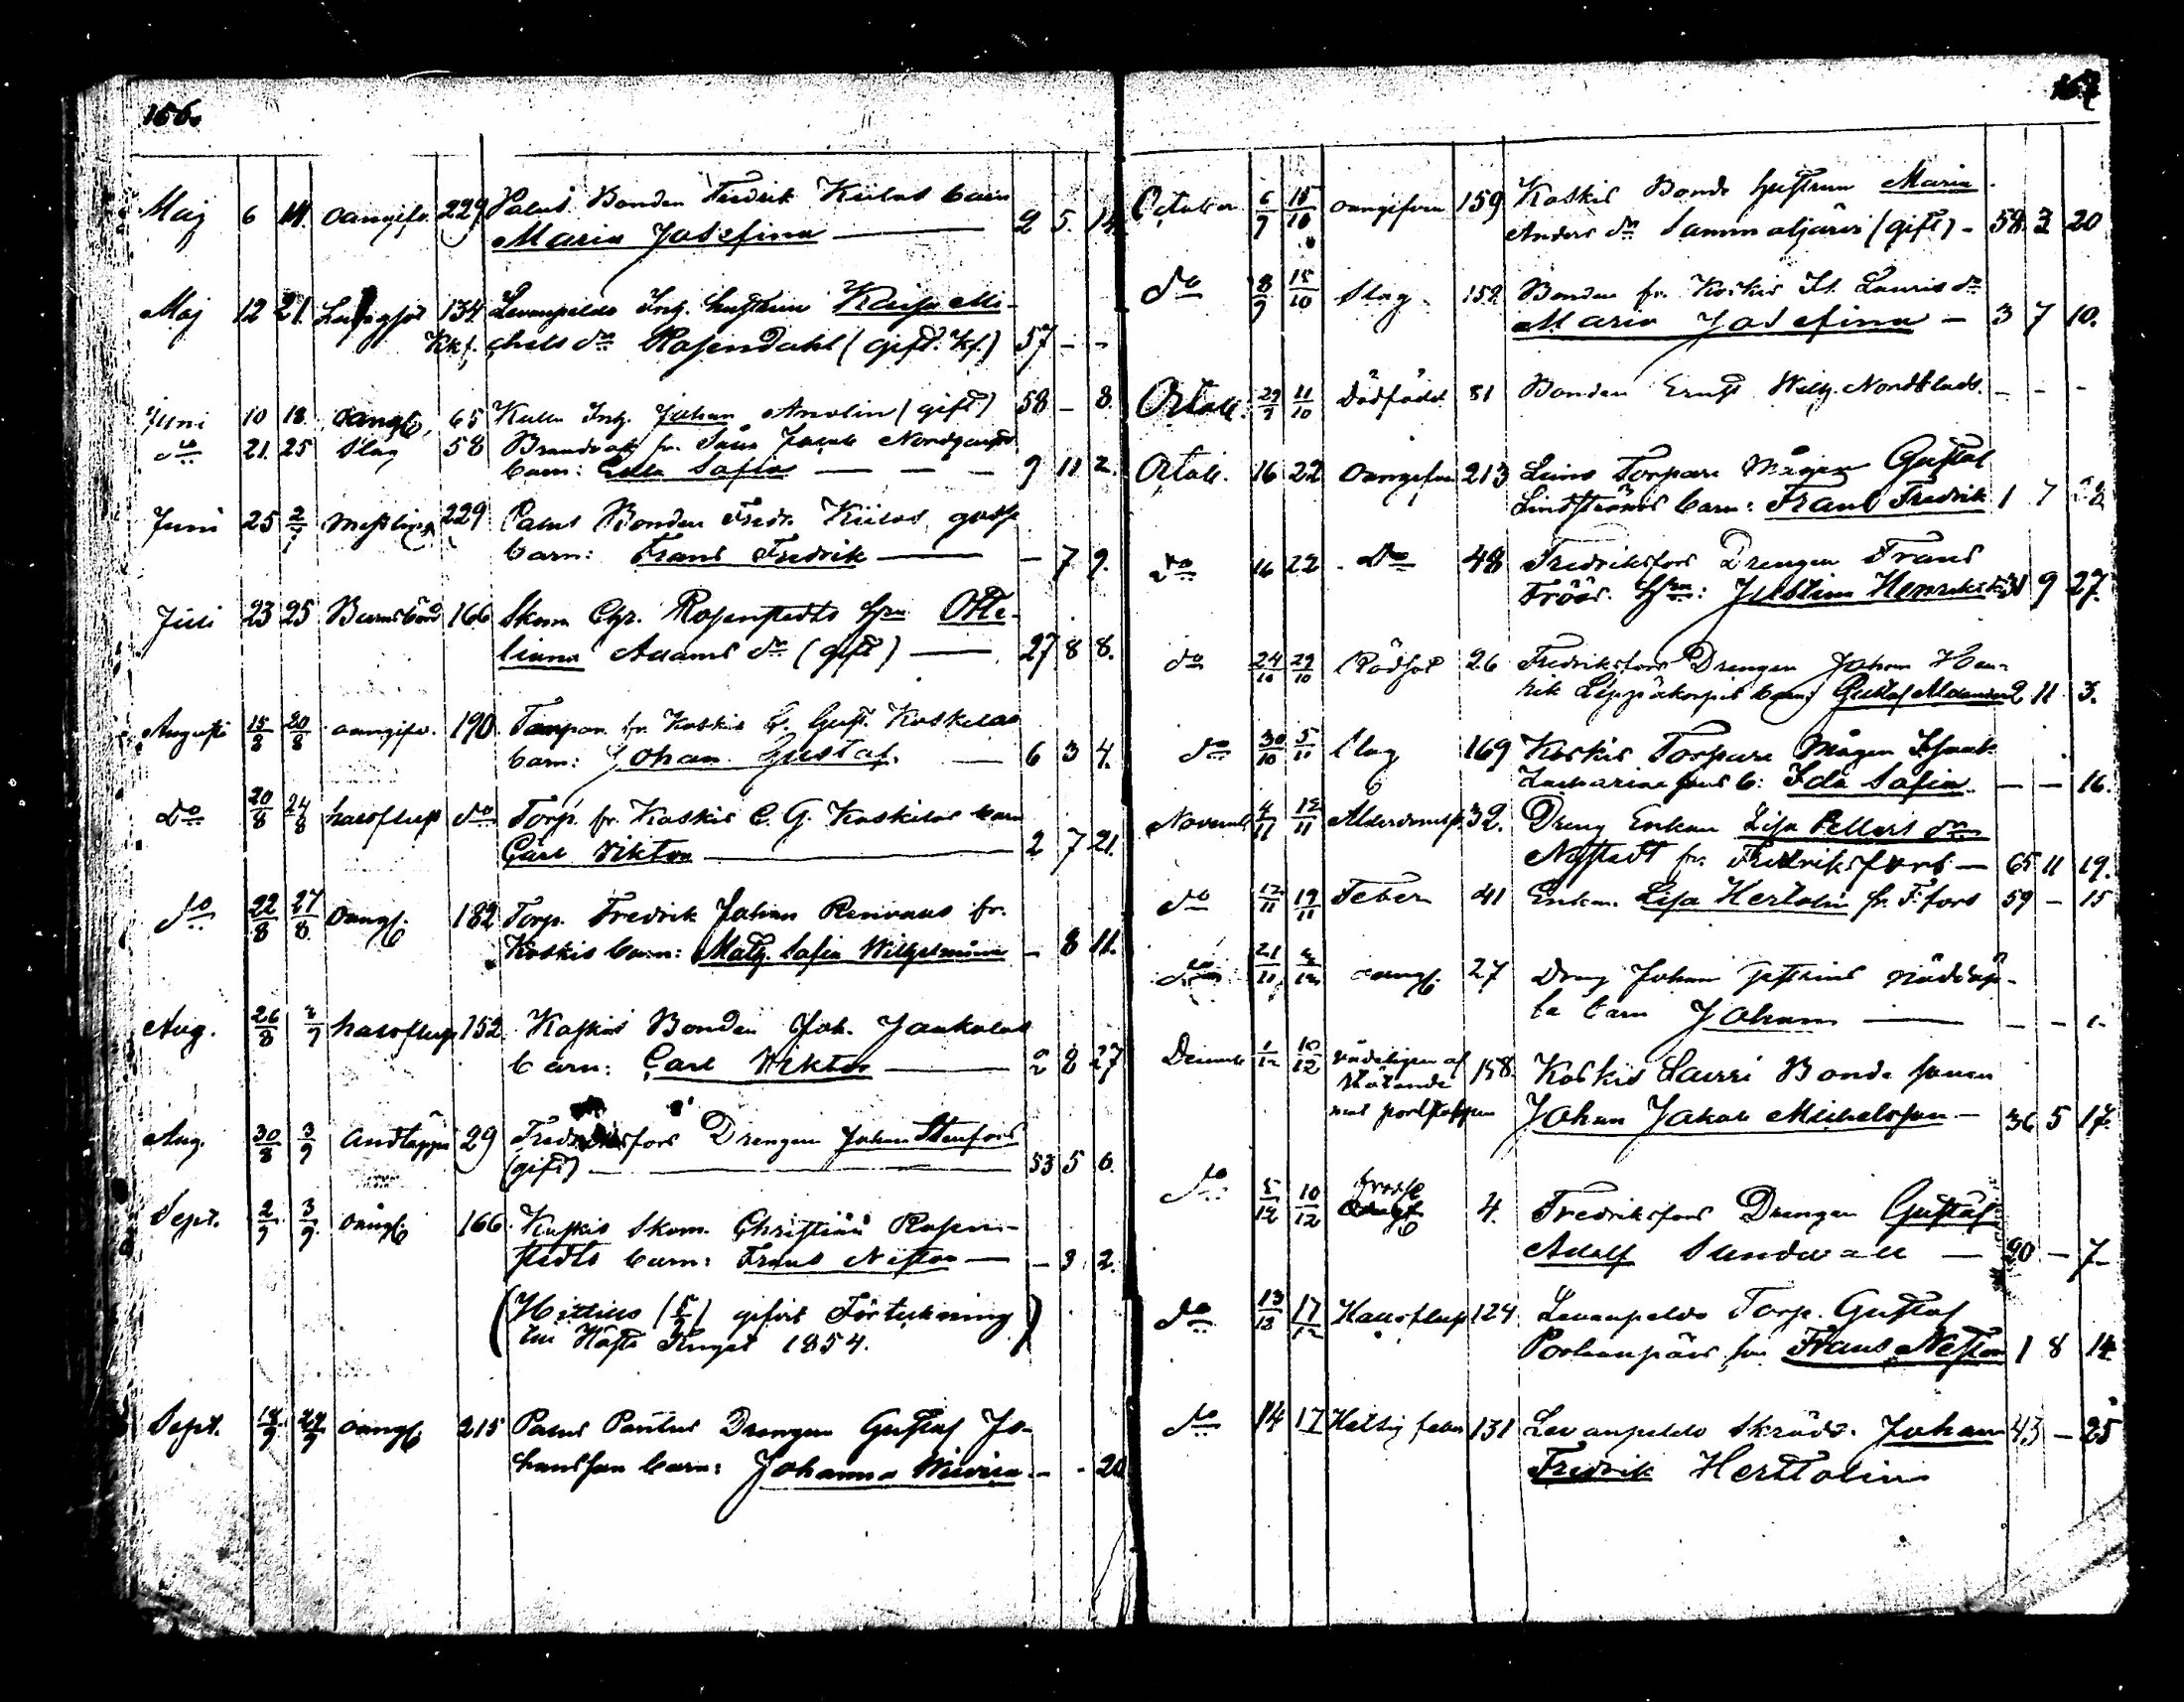 156.
Maj 6 14. oangifv. 229 Palus Bonden Fredrik Kiilas barn
Maria Josefina — 2 5. 14
Maj 12 21. Lungsot 134 Levanpelds Inh. hustrun Kaisa Mi-
Kkf. chels dr Rosendahl (gift. Kf.) 57 - -
Juni 10 18. oangf. 65 Inh. Johan (gift) 58 - 8.
do 21. 25 Slag 58 fr. Jacob
barn: Sofia — 9 11 2.
Juni 25 2/7 Messling 229 Palus Bonden Fredr. Kiilas gosse
barn: Frans Fredrik — - 7 9.
Juli 23 25 Barnsbörd 166 Skom. Chr. Rosenstedts hu Otte-
liana Adams dr (gift) — 27 8 8.
Augusti 15/8 20/8 oangifv. 190. fr. Koskis C. Gust. Koskelas
barn: Johan Gustaf. — 6 3 4.
do 20/8 24/8 halsflusp do Torp. fr. Koskis C. G. Koskelas barn
Carl Viktor — 2 7 21.
do 22/8 27/8 oangf. 182 Torp. Fredrik Johan fr.
Koskis barn: Math. Sofia Wilhelmina - 8 11.
Aug. 26/8 3/9 halsflusp 152. Koskis Bonden Joh. Jaakolas
barn: Carl Viktor — 2 8 27
Aug. 30/8 3/9 Andtäppa 29 Fredriksfors Drengen Johan Stenfors
(gift) — 53 5 6.
Sept. 2/9 3/9. oangf. 166. Koskis Skom. Christian Rosen-
stedts barn: Frans Nestor — - 3. 2.
(Hittills (5/9) gjord Förteckning
till 1854.)
Sept. 18/9 24/9 oangf. 215 Palus Drengen Gustaf Jo-
hansson barn: Johanna - - 20
157
October 6/9 15/10 oangifven 159 Koskis Bonde hustrun Maria
Anders dr Sammaljärvi (gift) - 58. 3 20
do 8/9 15/10 Slag 152 Bonden fr. Koskis Lauris dr
Maria Josefina — 3 7 10.
Octob. 29/9 11/10 Dödfödd 81 Bonden Ernst Wilh. Nordblads. - - -
Octob. 16 22 Oangifven 213 Torpare Mågen Gustaf
Lindströms barn: Frans Fredrik 1 7
do 16 22 do 48 Fredriksfors Drengen Frans
Fröös. hru: Justina Henriks dr 31 9 27.
do 24/10 29/10 Rödsot 26 Fredriksfors Drengen Johan Hen-
rik Leppäkorpis barn: Gustaf Alexander 2 11 3.
do 30/10 5/11 Slag 169 Koskis Torpare Mågen Isaak
Zacharias sons b: Ida Sofia. — - - 16.
November 4/11 12/11 Ålderdomssv. 32. Dreng Enkan Lisa Pellers dr
fr. Fredriksfors — 65 11 19.
do 12/11 19/11 Feber 41 Enkan Lisa Hertolin fr. F. fors 59 - 15
do 21/11 12 oangf. 27 Dreng Johan nöddöp-
ta barn Johan — - - 1.
Decemb. 1/12 10/12 vådeligen af
stötande
mot portstolpen 158. Koskis Lauri Bonde sonen
Johan Jakob Michelsson — 36 5 17.
do 5/12 10/12 4. Fredriksfors Drengen Gustaf
Adolf Sundvall — 20 - 7-
do 13/12 17/12 Halsflusp 124 Levanpelds Torp. Gustaf
Porkanpääs son Frans Nestor 1 8 14
do 14 17 Hettig feber 131 Levanpelds Skrädd. Johan 43 - 25
Fredrik Herttolin